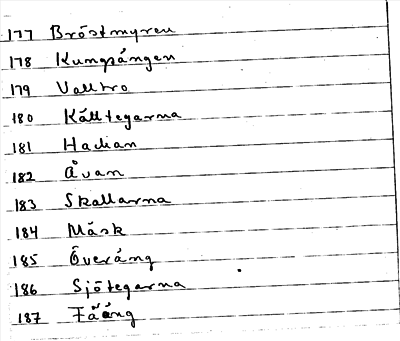 177 Bröstmyren
178 Kungsängen
179 Valltro
180 Källtegarna
181 Hadian
182 Åvan
183 Skallarna
184 Mäsk
185 Överäng
186 Sjötegarna
187 Fääng